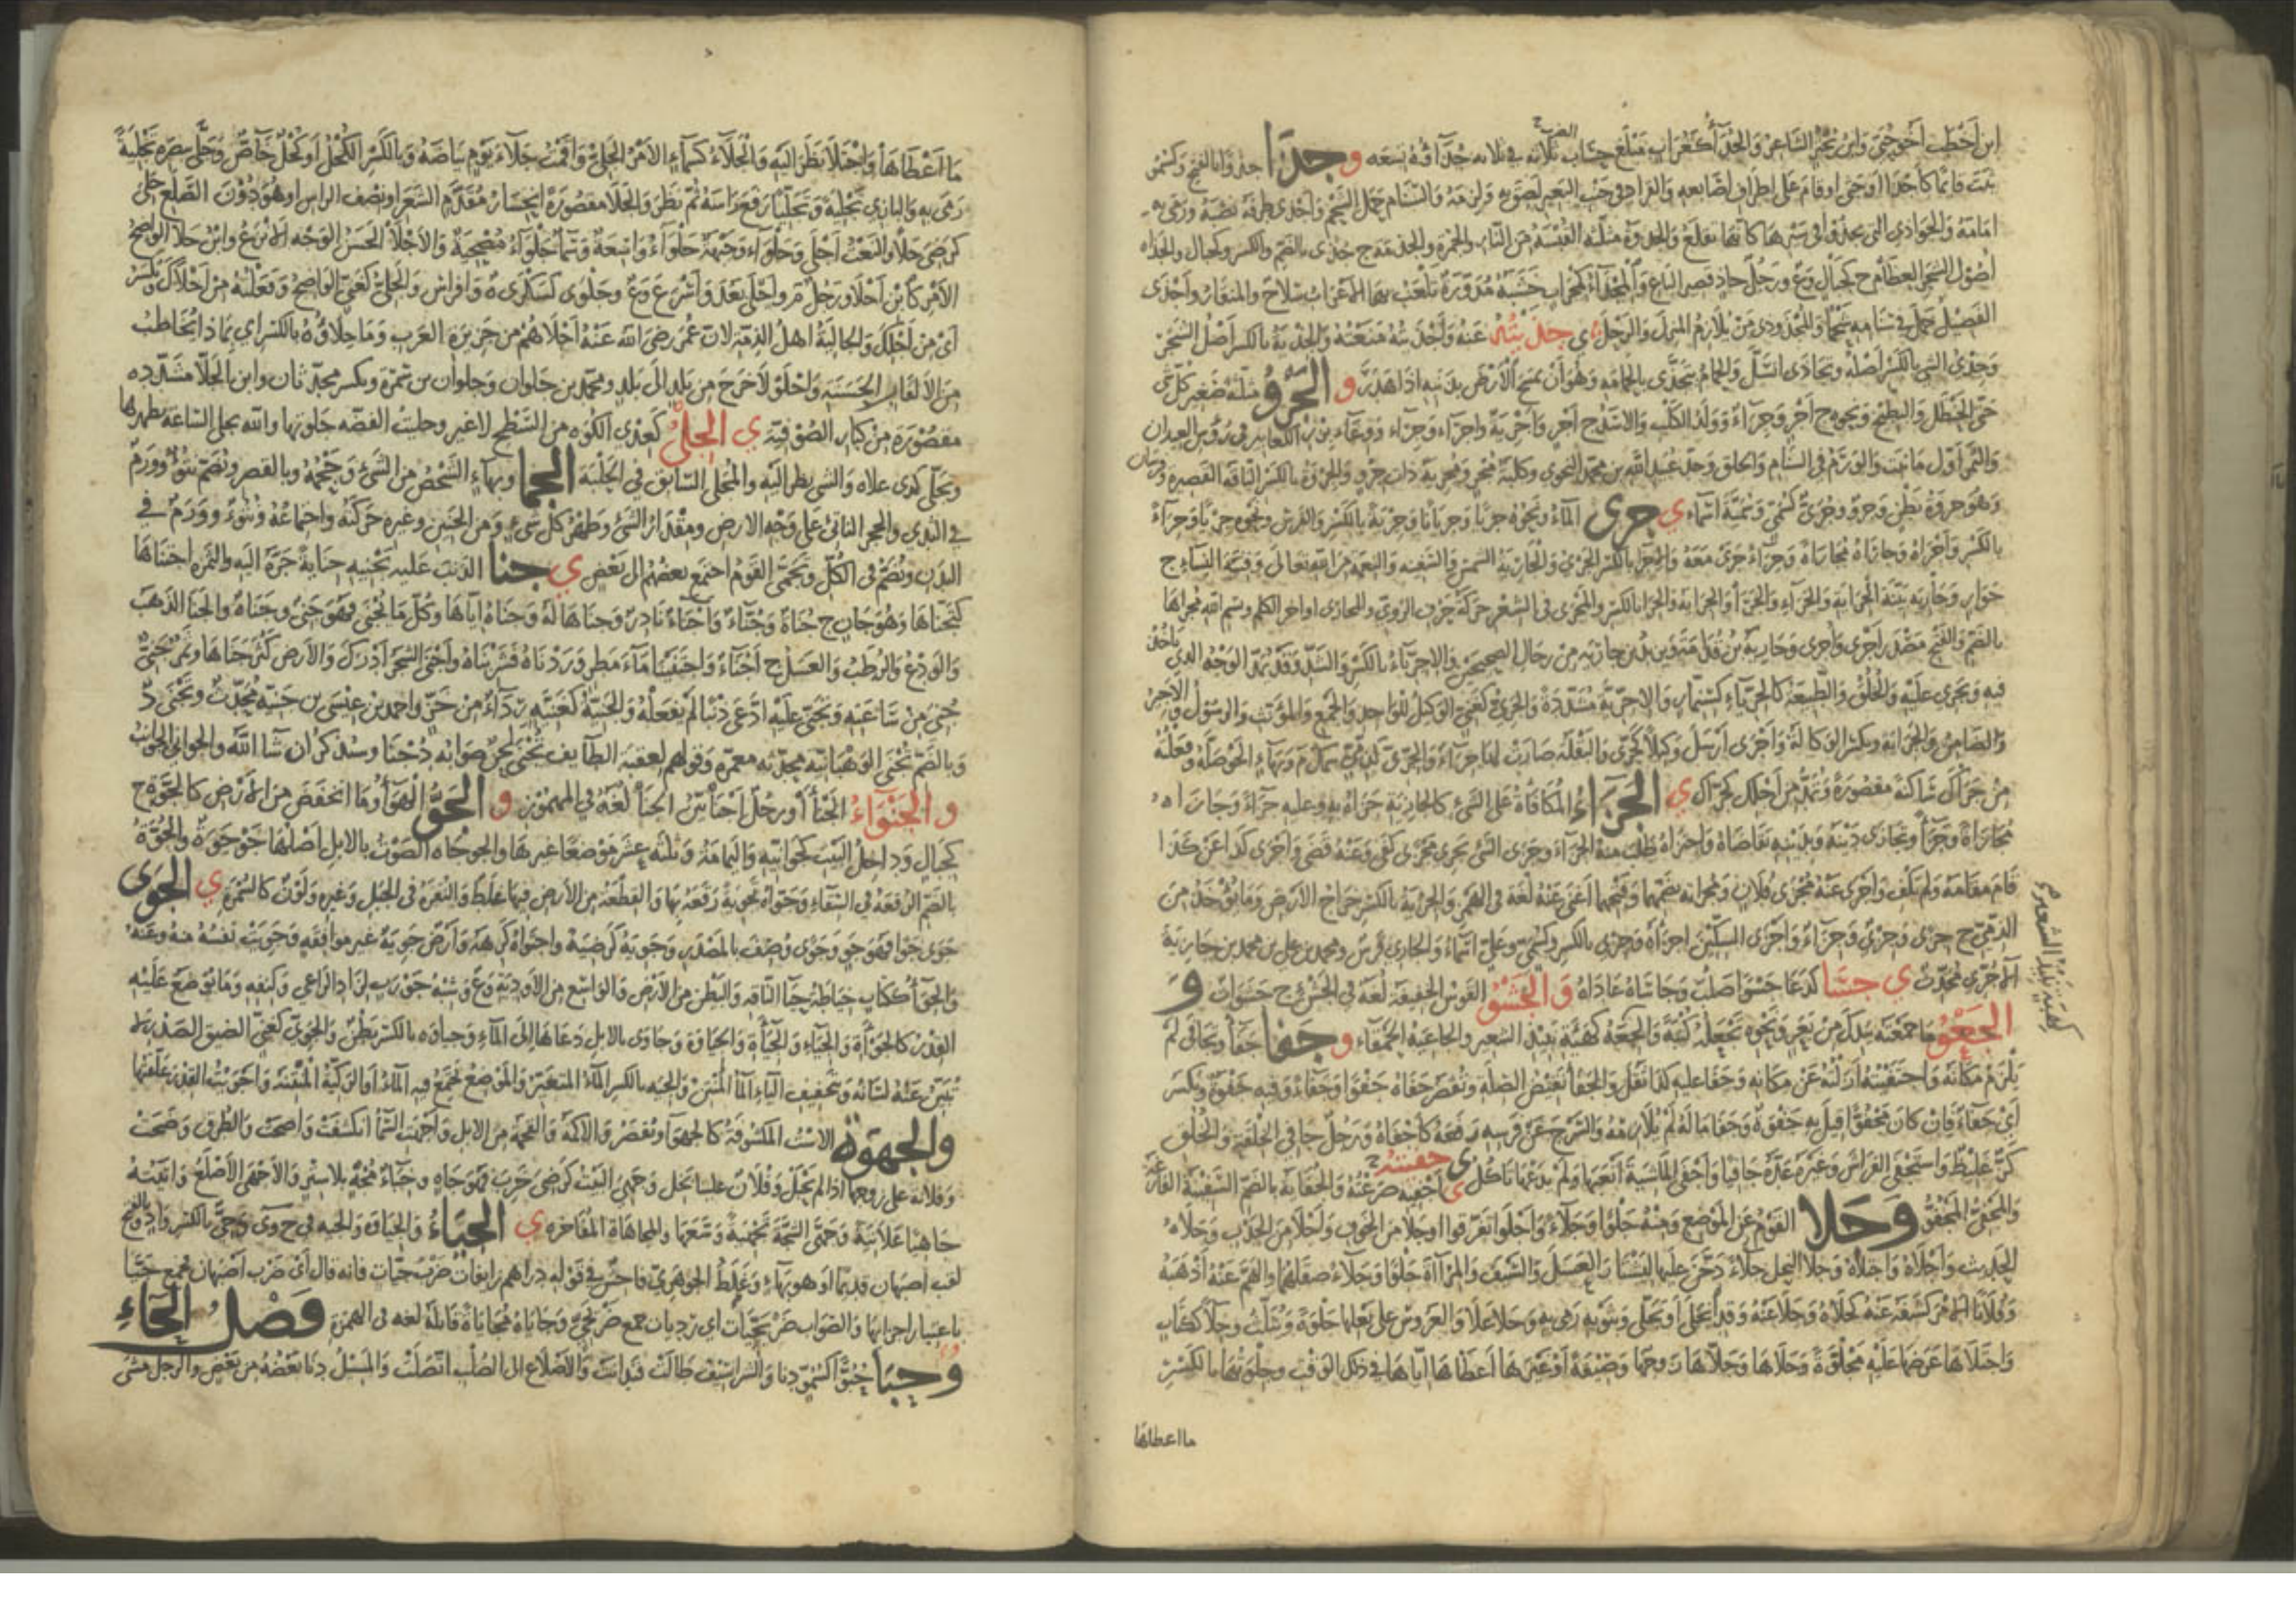 ابن أخطب أخو حيي وابن تجير الشاعر والجداء كغراب مبلغ حساب الضرب ثلاثة في ثلاثة جداؤه تسعة و جذا جذوا بالفتح وكسمو
ثبت قائما كأجذا أو جثى أو قام على أطراف أصابعه والقراد في جنب البعير لصق به ولزمه والسنام حمل الشحم وأجذى طرفه نصبه ورمى به
أمامه والجواذي التي تجذو في سيرها كأنها تقلع والجذوة مثلثة القبسة من النار والجمرة والجذمة ج جذى بالضم والكسر وكجبال والجذاة
أصول الشجر العظام ج كجبال وع ورجل جاذ قصير الباع والمجذاء كمحراب خشبة مدورة تلعب بها الأعراب سلاح والمنقار وأجذى
الفصيل حمل في سنامه شحما والمجذوذي من يلازم المنزل والرحل ي جذيته عنه وأجذيته منعته والجذية بالكسر أصل الشجر
وجذى الشيء بالكسر أصله وتجاذى انسل والحمام يتجذى بالحمامة وهو أن يمسح الأرض بذنبه إذا هدر و الجرو مثلثة صغير كل شيء
حتى الحنظل والبطيخ ونحوه ج أجر وجراء وولد الكلب والأسد ج أجر وأجرية وأجراء وجراء ووعاء بزر الكعابير في رؤس العيدان
والثمر أول ما نبت والورم في السنام والحلق وجد عبيد الله بن محمد النحوي وكلبة مجر ومجرية ذات جرو والجروة بالكسر الناقة القصيرة
وبنو جروة بطن وجرو وجري كسمي وسمية أسماء ي جرى الماء ونحوه جريا وجريانا وجرية بالكسر والفرس ونحوه جريا وجراء
بالكسر وأجراه وجاراه مجاراة وجراء جرى معه والإجريا بالكسر الجري والجارية الشمس والسفينة والنعمة من الله تعالى وفتية النساء ج
جوار وجارية بينة الجراية والجراء والجرا والجرائية والجراء بالكسر والمجرى في الشعر حركة حرف الروي والمجاري أواخر الكلم وبسم الله مجراها
بالضم والفتح مصدر أجرى وجرى وجارية بن قدامة ويزيد بن جارية من رجال الصحيحين والإجريا بالكسر والشد وقد يمد الوجه الذي تأخذ
فيه وتجري عليه والخلق والطبيعة كالجرياء كسنمار والإجرية مشددة والجري كغني الوكيل للواحد والجمع والمؤنث والرسول والأجير
والضامن والجراية ويكسر الوكالة وأجرى أرسل وكيلا كجرى والبقلة صارت لها جراء والجري كذمي سمك م وبهاء الحوصلة وفعلته
من جراك ساكنة مقصورة وتمد من أجلك كجراك ي الجزاء المكافأة على الشيء كالجازية جزاه به وعليه جزاء وجازاه
مجازاة وجزاء وتجازى دينه وبدينه تقاضاه واجتزاه طلب منه الجزاء وجزى الشيء يجزي كفى وعنه قضى وأجزى كذا عن كذا
قام مقامه ولم يكف وأجزى عنه مجزى فلان ومجزاته بضمهما وفتحهما أغنى عنه لغة في الهمز والجزية بالكسر خراج الأرض وما يؤخذ من
الذمي ج جزى وجزي وجزاء وأجزى السكين أجزأه وجزي بالكسر وكسمي وعلي أسماء والجازي فرس ومحمد بن علي بن محمد بن جازية
الآخري محدث ي جسا كدعا جسوا صلب وجاساه عاداه و الجشو القوس الخفيفة لغة في الجشء ج جشوات و
الجعو ما جمعته بيدك من بعر ونحوه تجعله كثبة والجعة كهيئة نبيذ الشعير والجاعية الحمقاء و جفا جفاء وتجافى لم
كهبة نبيذ الشعير
يلزم مكانه واجتفيته أزلته عن مكانه وجفا عليه كذا ثقل والجفاء نقيض الصلة ويقصر جفاه جفوا وجفاء وفيه جفوة ويكسر
أي جفاء فإن كان مجفوا قيل به جفوة وجفا ماله لم يلازمه والسرج عن فرسه رفعه كأجفاه ورجل جافي الخلقة والخلق
كز غليظ واستجفى الفراش وغيره عده جافيا وأجفى الماشية أتعبها ولم يدعها تأكل ي جفيته أجفيه صرعته والجفاية بالضم السفينة الفارغة
والمجفي المجفو و جلا القوم عن الموضع ومنه جلوا وجلاء وأجلوا تفرقوا أو جلا من الخوف وأجلا من الجدب وجلاه
الجدب وأجلاه واجتلاه وجلا النحل جلاء دخن عليها ليشتار العسل والسيف والمرآة جلوا وجلاء صقلهما والهم عنه أذهبه
وفلانا الأمر كشفه عنه كجلاه وجلى عنه وقد انجلى وتجلى وبثوبه رمى به وجلا علا والعروس على بعلها جلوة ويثلث وجلاء ككتاب
واجتلاها عرضها عليه مجلوة وجلاها وجلاها زوجها وصيفة أو غيرها أعطاها إياها في ذلك الوقت وجلوتها بالكسر
ما أعطاها
ما أعطاها واجتلاه نظر إليه والجلاء كسماء الأمر الجلي وأقمت جلاء يوم بياضه وبالكسر الكحل أو كحل خاص وجلى ببصره تجلية
رمى به والبازي تجلية وتجليا رفع رأسه ثم نظر والجلا مقصورة انحسار مقدم الشعر أو نصف الرأس أو هو دون الصلع جلي
كرضي جلا والنعت أجلى وجلواء وجبهة جلواء واسعة وسماء جلواء مصحية والأجلى الحسن الوجه الأنزع وابن جلا الواضح
الأمر كابن أجلى ورجل م وأجلى يعدو أسرع وع وجلوى كسكرى ة وأفراس والجلي كغني الواضح وفعلته من أجلاك ويكسر
أي من أجلك والجالية أهل الذمة لأن عمر رضي الله عنه أجلاهم من جزيرة العرب وما جلاؤه بالكسر أي بماذا يخاطب
من الألقاب الحسنة واجلولى خرج من بلد إلى بلد ومحمد بن جلوان وجلوان بن سمرة ويكسر محدثان وابن الجلا مشددة
مقصورة من كبار الصوفية ي الجلي كغدي الكوة من السطح لا غير وجليت الفضة جلوتها والله يجلي الساعة يظهرها
وتجلى كذا علاه والشيء نظر إليه والمجلي السابق في الحلبة الجما وبهاء الشخص من الشيء وحجمه وبالقصر ويضم نتوء وورم
في البدن والحجر الناتئ على وجه الأرض ومقدار الشيء وظهر كل شيء ومن الجنين وغيره حركته واجتماعه ونتوء وورم في
البدن ويضم في الكل وتجمى القوم اجتمع بعضهم إلى بعض ي جنا الذنب عليه يجنيه جناية جره إليه والثمرة اجتناها
كتجناها وهو جان ج جناة وجناء وأجناء نادر وجناها له وجناه إياها وكل ما يجنى فهو جنى وجناة والجنا الذهب
والودع والرطب والعسل ج أجناء واجتنينا ماء مطر وردناه فشربناه وأجنى الشجر أدرك والأرض كثر جناها وثمر جني
جني من ساعته وتجنى عليه ادعى ذنبا لم يفعله والجنية كغنية رداء من خز وأحمد بن عيسى بن جنية محدث وتجنى د
وبالضم تجنى الوهبانية محدثة معمرة وقولهم لعقبة الطائف تجنى لحن صوابه دجنا وسيذكر إن شاء الله والجواني الجوانب
و الجنواء الجنأ أو رجل أجنأ بين الجنا لغة في المهموز و الجو الهواء وما انخفض من الأرض كالجوة ج
كجبال وداخل البيت كجوانيه واليمامة وثلثة عشر موضعا غيرها والجوجاة الصوت بالإبل أصلها جوجوة والجوة
بالضم الرقعة في السقاء وجواه تجوية رقعه بها والقطعة من الأرض فيها غلظ والنقرة في الجبل وغيره ولون كالسمرة ي الجوى
جوي جوا فهو جو وجوى وصف بالمصدر وجويه كرضيه واجتواه كرهه وأرض جوية غير موافقة وجويت نفسه منه وعنه
والجواء ككتاب خياطة حياء الناقة والبطن من الأرض والواسع من الأودية وع وشبه جورب لزاد الراعي وكنفه وما توضع عليه
القدر كالجواءة والجياء والجياءة والجياوة وجاوى بالإبل دعاها إلى الماء وجياوة بالكسر بطن والجوي كغني الضيق الصدر لا
يبين عنه لسانه وبتخفيف الياء الماء المنتن والجية بالكسر الماء المتغير والموضع يجتمع فيه الماء أو الركية المنتنة وأجويت القدر علقتها
والجهوة الاست المكشوفة كالجهوا ويقصر والأكمة والقحمة من الإبل وأجهت السماء انكشفت وأصحت والطرق وضحت
وفلانة على زوجها إذا لم تحبل وفلان علينا بخل وجهي البيت كرضي خرب فهو جاه وخباء مجه بلا ستر والأجهى الأصلع وأتيته
جاهيا علانية وجهى الشجة تجهية وسعها والمجاهاة المفاخرة ي الجياء والجياوة والجية في ج و ي وجي بالكسر واد وبالفتح
لقب أصبهان قديما أو هو بهاء وغلط الجوهري فاحش في قوله دراهم زائفات ضرب جيات فإنه قال أي ضرب أصبهان فجمع جيا
باعتبار أجزائها والصواب ضربجيات أي رديات جمع ضربجي وجاياه مجاياة قابله لغة في الهمز فصل الحاء
و حبا حبوا كسمو دنا والشراسيف طالت فتدانت والأضلاع إلى الصلب اتصلت والمسيل دنا بعضه من بعض والرجل مشى